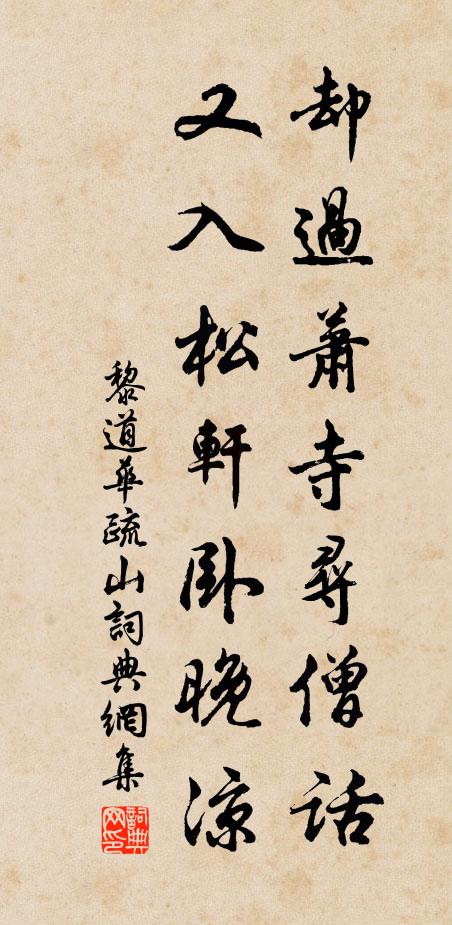 却過蕭寺尋僧話
又入松軒臥晚涼
黎道華疏山詞典網集
詞典網印